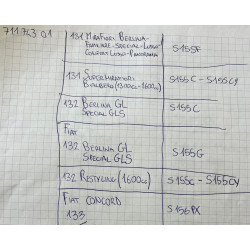 711743 01
131 Mirafiori Berlina-
Familiare-Special-Lusso
Cololux Lusso-Panorama
S155F
131 Supermirafiori
Bialbero (1300cc-1600cc)
S155C - S155CY
132 Berlina GL
Special GLS
S155C
Fiat
132 Berlina GL
Special GLS
S155G
132 Restyling (1600cc)
S155C - S155CY
Fiat CONCORD
133
S156PX